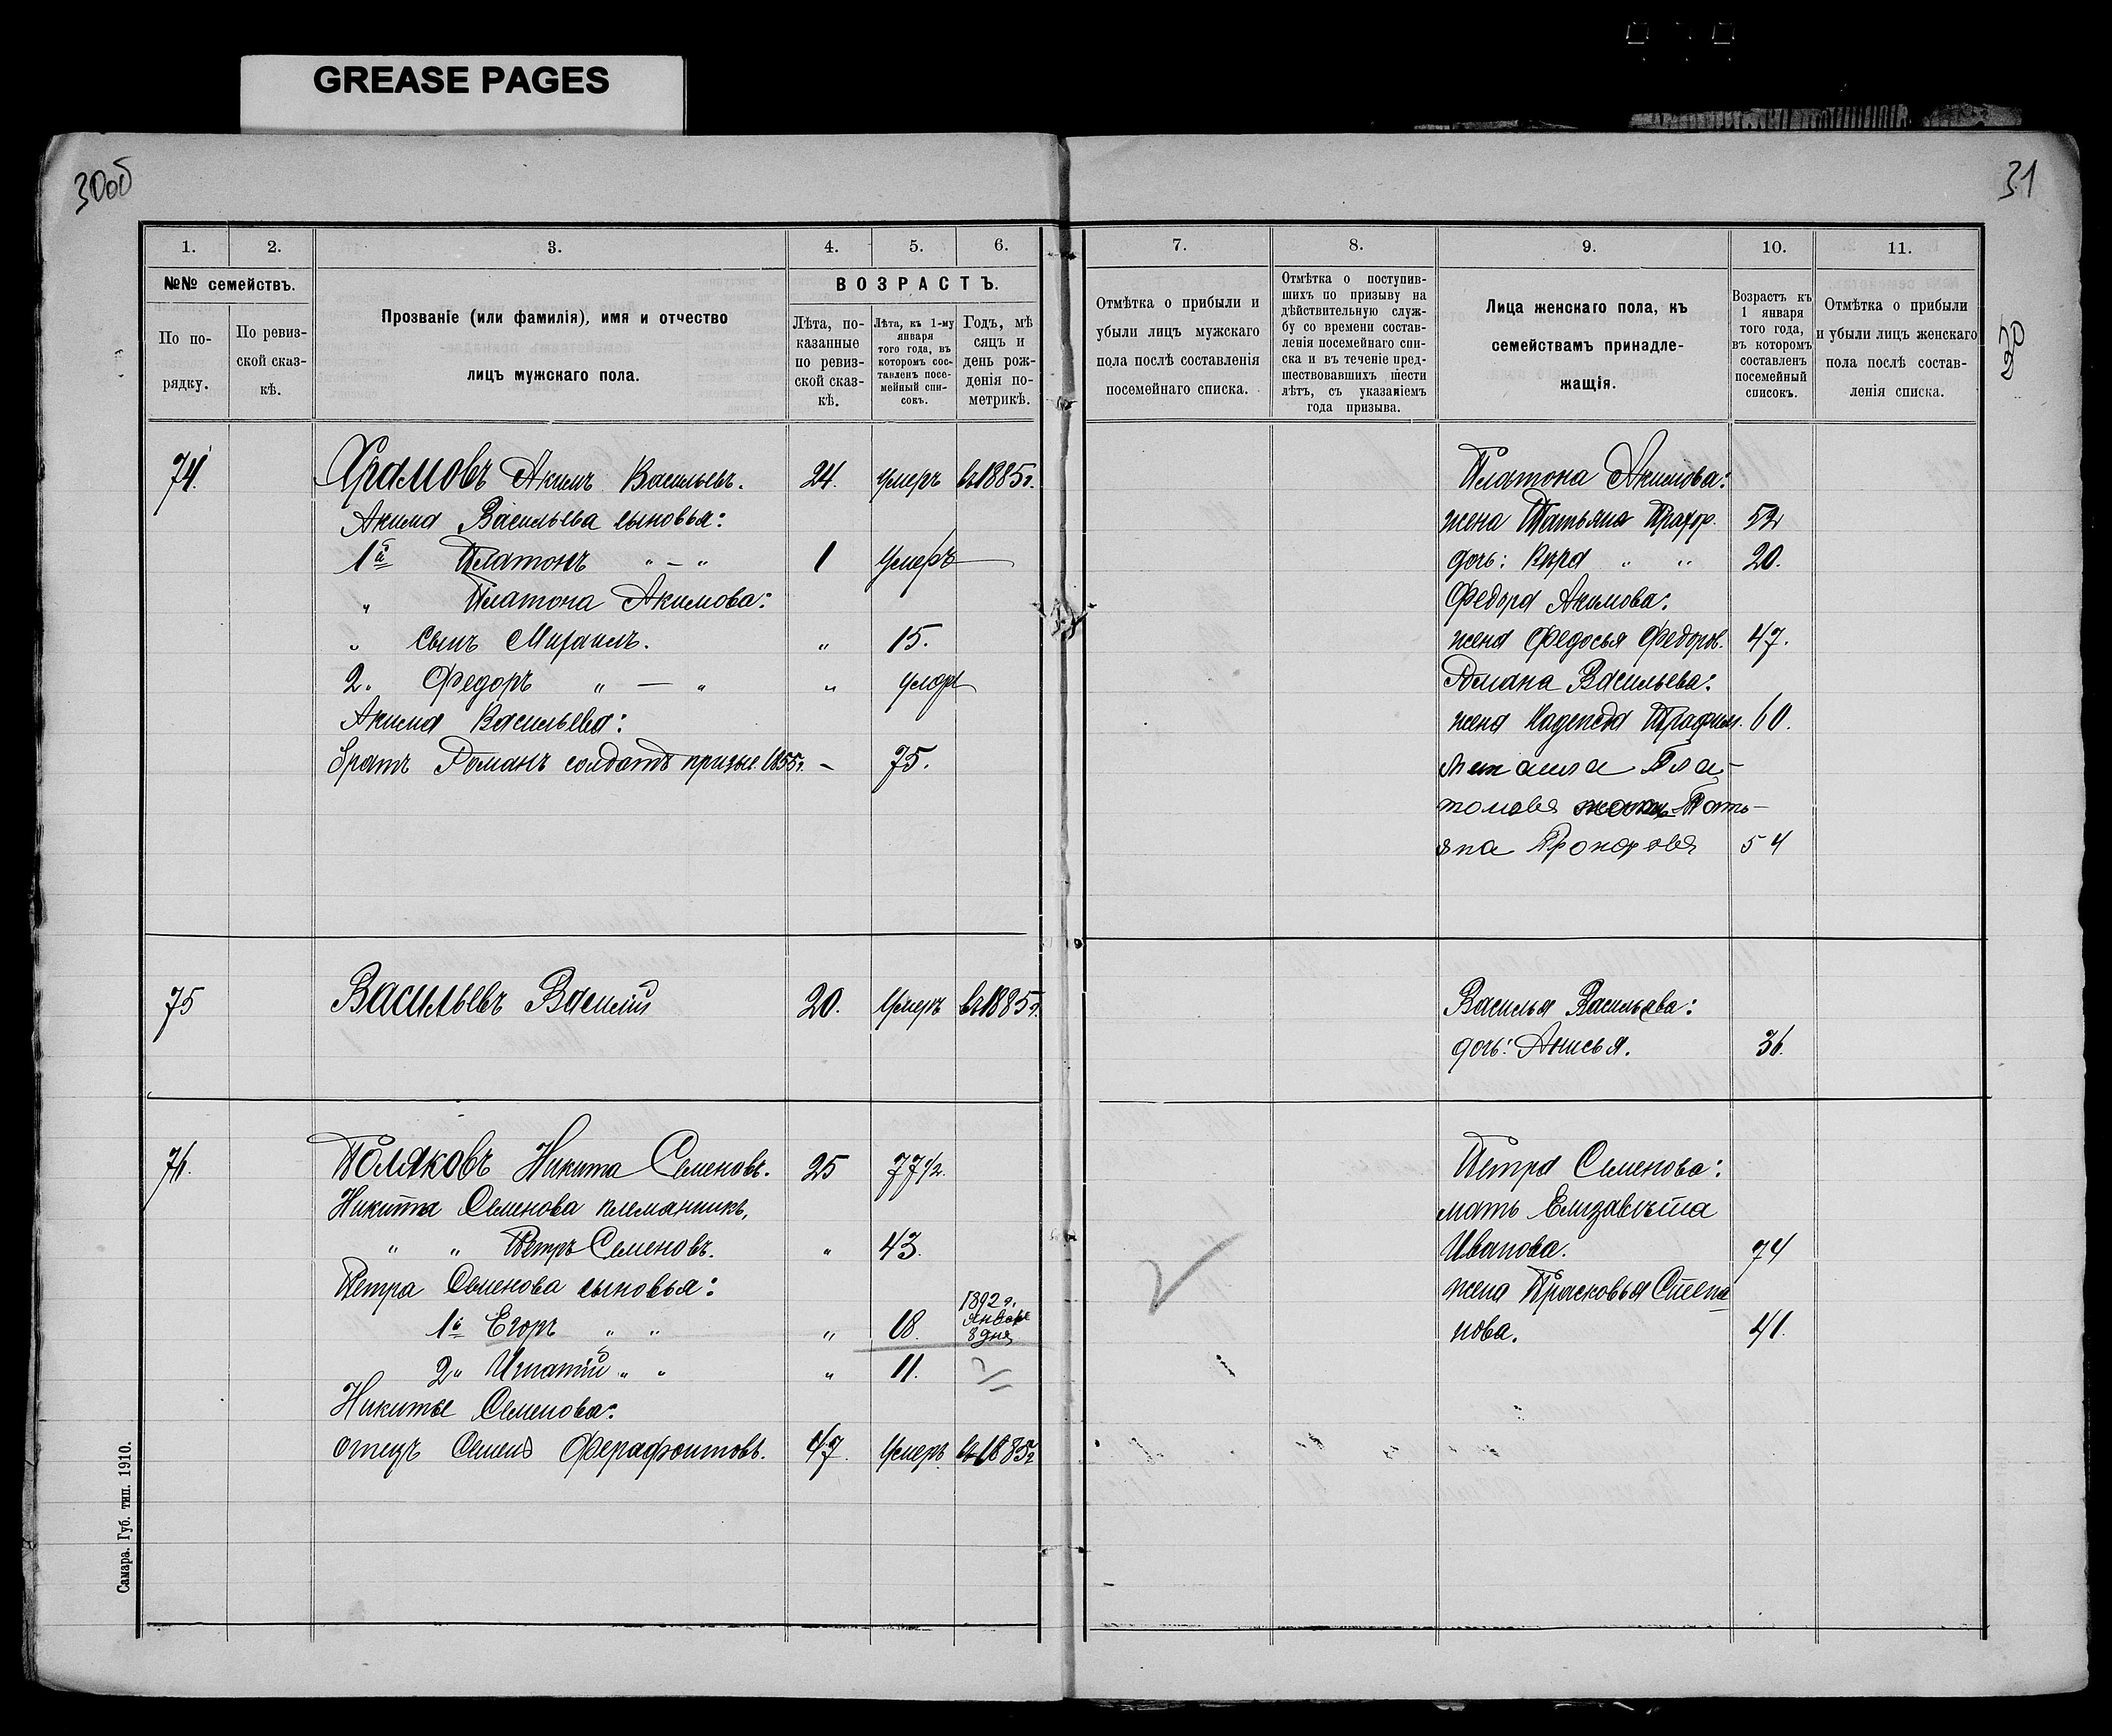 GREASE PAGES
30об
31
1.
2.
3.
4.
5.
6.
№№ семействъ.
По по-
рядку.
По ревиз-
ской сказ-
кѣ.
Прозваніе (или фамилія), имя и отчество
лицъ мужскаго пола.
ВОЗРАСТЪ.
Лѣта, по-
казанные
по ревиз-
ской сказ-
кѣ.
Лѣта, къ 1-му
января
того года, въ
которомъ сос-
тавленъ посе-
мейный спи-
сокъ.
Годъ, мѣ
сяцъ и
день рож-
денія по-
метрикѣ.
74. Храмовъ Акимъ Васильевъ. 24. умеръ въ 1885г.
Акима Васильева сыновья:
1й Платонъ " — " 1 умеръ
" Платона Акимова:
" сынъ Михаилъ. " 15.
2. Федоръ " — " " умеръ
Акима Васильева:
братъ Романъ солдатъ призыв. 1855г. - 75.
75 Васильевъ Василій 20. умеръ въ 1885г.
76. Поляковъ Никита Семеновъ. 25 77½.
Никита Семенова племянникъ,
" " Петръ Семеновъ. " 43.
Петра Семенова сыновья:
1й Егоръ " " " 18. 1892г. Января 8 дня
2" Игнатій " " " 11.
Никиты Семенова:
отецъ Семенъ Ферафонтовъ. 47. умеръ въ 1885г.
Самара. Губ. тип. 1910.
7.
8.
9.
10.
11.
Отмѣтка о прибыли и
убыли лицъ мужскаго
пола послѣ составленія
посемейнаго списка.
Отмѣтка о поступив-
шихъ по призыву на
дѣйствительную служ-
бу со времени состав-
ленія посемейнаго спи-
ска и въ теченіе пред-
шествовавшихъ шести
лѣтъ, съ указаніемъ
года призыва.
Лица женскаго пола, къ
семействамъ принадле-
жащія.
Возрастъ къ
1 января
того года,
въ которомъ
составленъ
посемейный
списокъ.
Отмѣтка о прибыли
и убыли лицъ женскаго
пола послѣ состав-
ленія списка.
Платона Акимова:
жена Татьяна Прохор. 52
дочь: Вѣра " " 20.
Федора Акимова:
жена Федосья Федоров. 47.
Романа Васильева:
жена Надежда Трафим. 60.
Михаила Пла-
това Тать-
яна Прохорова 54
Василья Васильева:
дочь: Анисья. 36.
Петра Семенова:
мать Елизавѣта
Иванова. 74
жена Прасковья Степа
нова. 41.